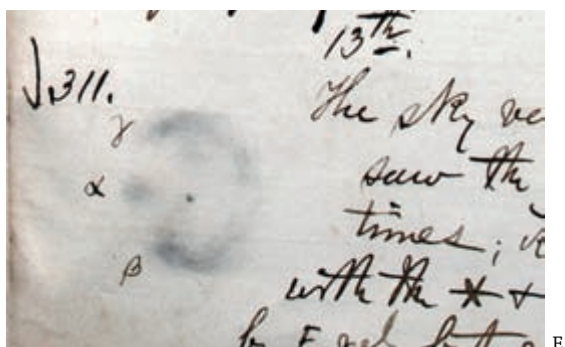 13th.
J.311.
γ
The sky ve
α
saw the
times;
β
with the * +
by
E